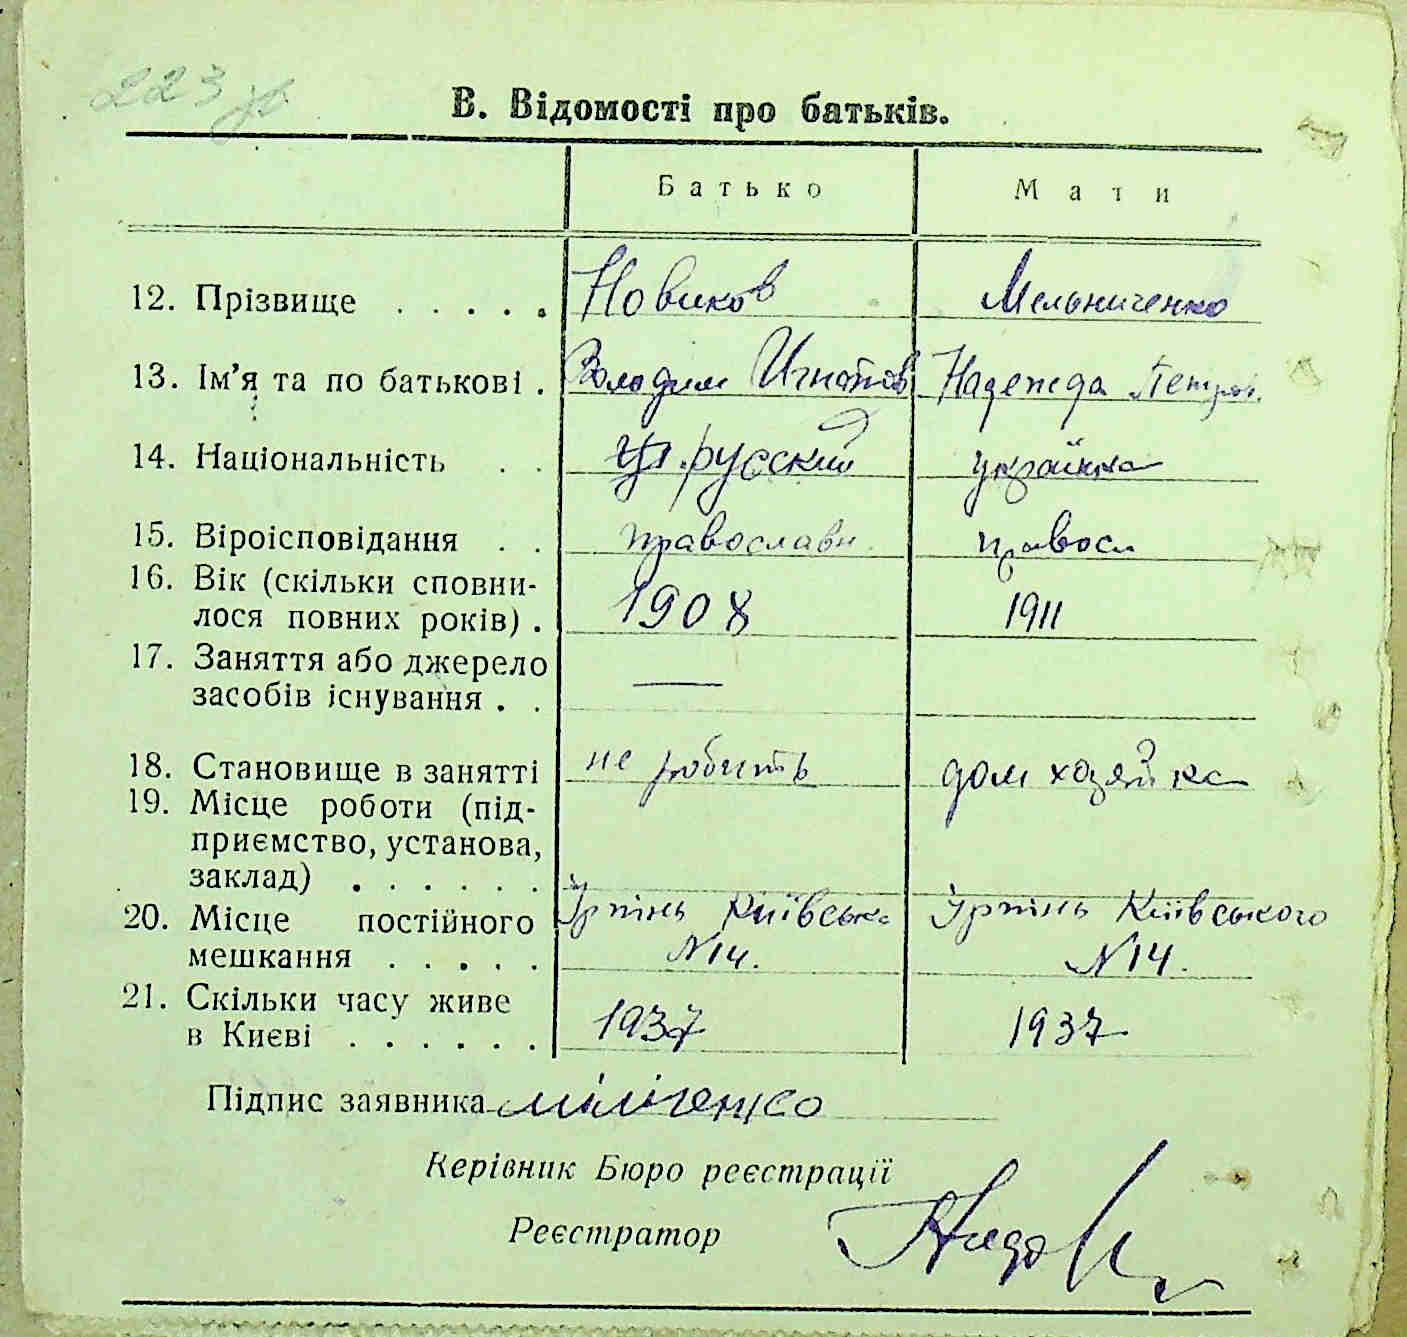 223
В. Відомості про батьків.
Батько Мати
12. Прізвище . . . . . Новиков Мельниченко
13. Ім’я та по батькові . Володим Игнатов Надежда Петров.
14. Національність . . русский українка
15. Віроісповідання . . православн. правосл
16. Вік (скільки сповни-
лося повних років) . 1908 1911
17. Заняття або джерело
засобів існування . . —
18. Становище в занятті не робить дом хозяйка
19. Місце роботи (під-
приємство, установа,
заклад) . . . . . .
20. Місце постійного Ірпінь Київська Ірпінь Київського
мешкання . . . . . N14. N14.
21. Скільки часу живе
в Києві . . . . . . 1937 1937
Підпис заявника
Керівник Бюро реєстрації
Реєстратор